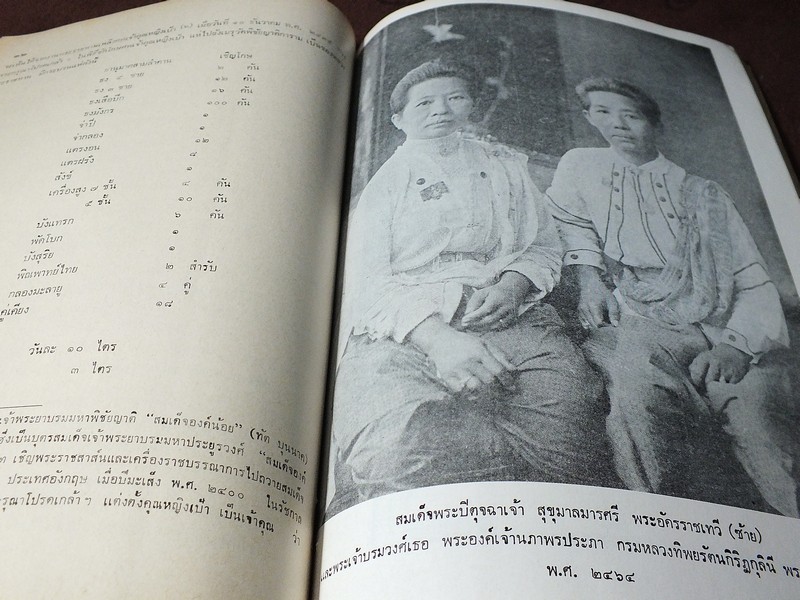 เชิญโกษ
ธง ๕ ชาย ๒ คัน
ธง ๓ ชาย ๑๒ คัน
ธงเลียบถึก ๑๖ คัน
ธงมังกร ๑๐๐ คัน
จ่าปี่ ๑
จ่ากลอง ๑
แตรงอน ๑๒
แตรฝรั่ง ๘
สังข์ ๑
เครื่องสูง ๗ ชั้น ๔ คัน
๕ ชั้น ๑๐ คัน
บังแทรก ๖ คัน
พัดโบก ๑
บังสุริย ๑
พิณพาทย์ไทย ๒ สำรับ
กลองมะลายู ๔ คู่
คู่เคียง ๑๘
วันละ ๑๐ ไตร
๓ ไตร
เจ้าพระยาบรมมหาพิชัยญาติ "สมเด็จองค์น้อย" (ทัต บุนนาค)
ซึ่งเป็นบุตรสมเด็จเจ้าพระยาบรมมหาประยูรวงศ์ "สมเด็จองค์
เชิญพระราชสาส์นและเครื่องราชบรรณาการไปถวายสมเด็จ
ประเทศอังกฤษ เมื่อปีมะเส็ง พ.ศ. ๒๔๐๐ ในรัชกาล
กรุณาโปรดเกล้าฯ แต่งตั้งคุณหญิงเป้า เป็นเจ้าคุณ ว่า
สมเด็จพระปิตุจฉาเจ้า สุขุมาลมารศรี พระอัครราชเทวี (ซ้าย)
และพระเจ้าบรมวงศ์เธอ พระองค์เจ้านภาพรประภา กรมหลวงทิพยรัตนกิริฏกุลินี พร
พ.ศ. ๒๔๖๔